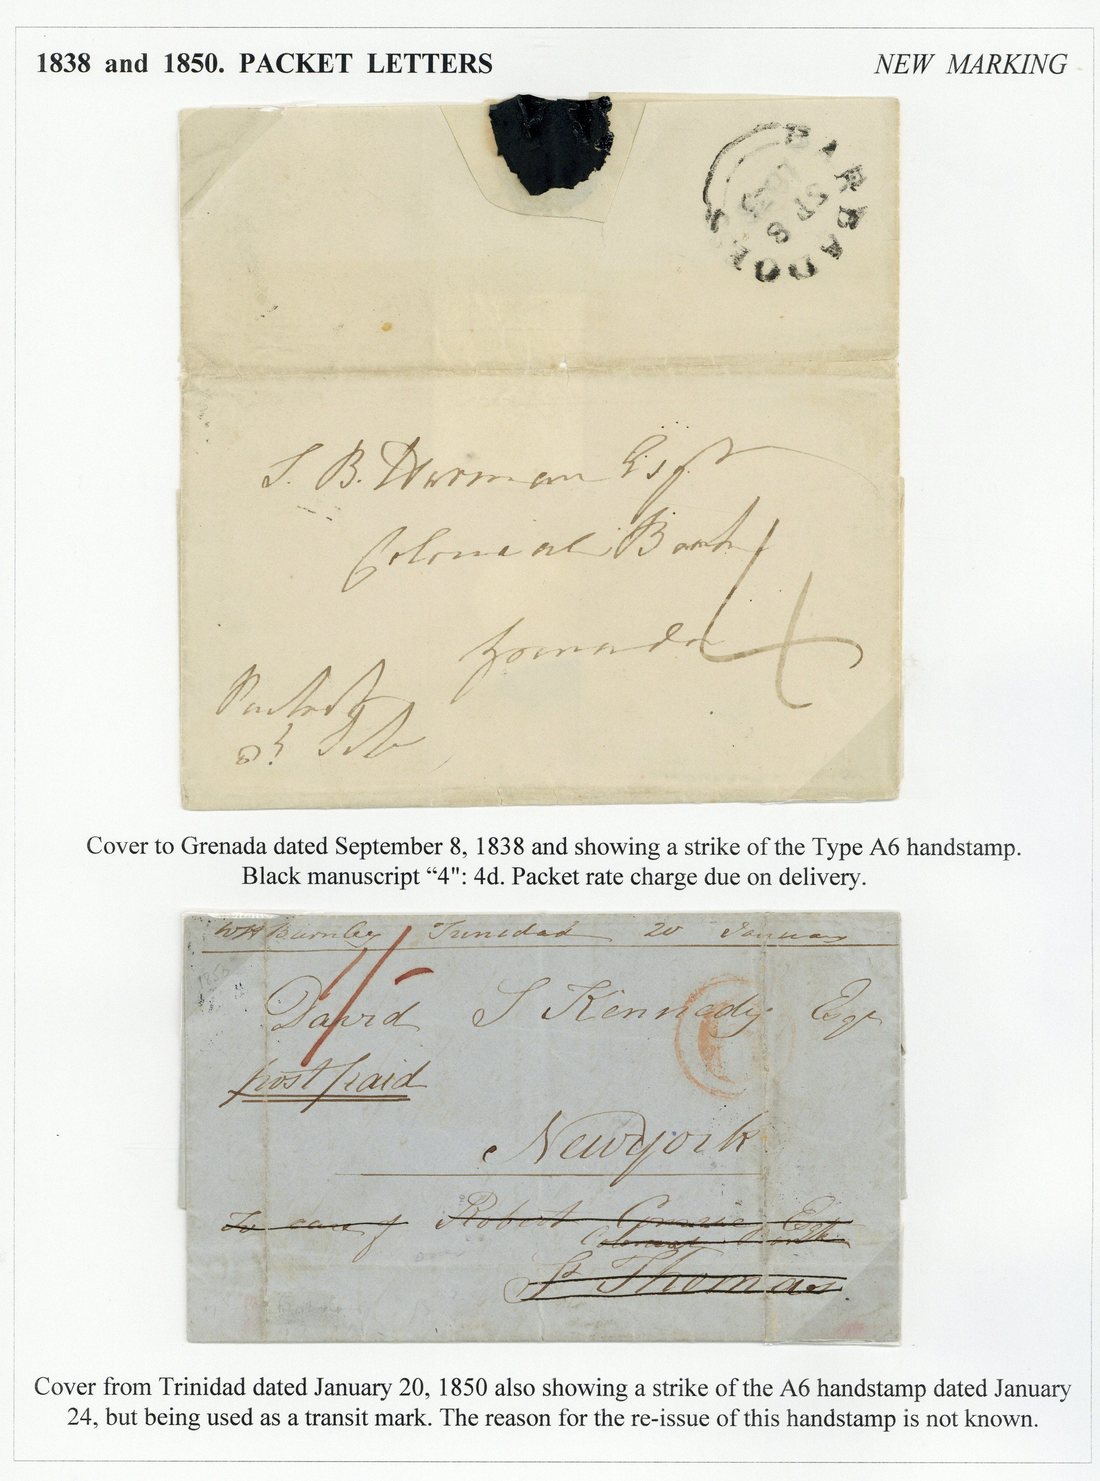 1838 and 1850. PACKET LETTERS
NEW MARKING
BARBADOES
SP 8
S. B. Harman Esqr
Colonial Bank
Grenada
4
Packet
Cover to Grenada dated September 8, 1838 and showing a strike of the Type A6 handstamp.
Black manuscript “4": 4d. Packet rate charge due on delivery.
WH Burnley Trinidad 20 January
1/-
David S Kennedy Esqr
post paid
Newyork
To care of Robert Esqr
Colonial Bank
St Thomas.
Cover from Trinidad dated January 20, 1850 also showing a strike of the A6 handstamp dated January
24, but being used as a transit mark. The reason for the re-issue of this handstamp is not known.